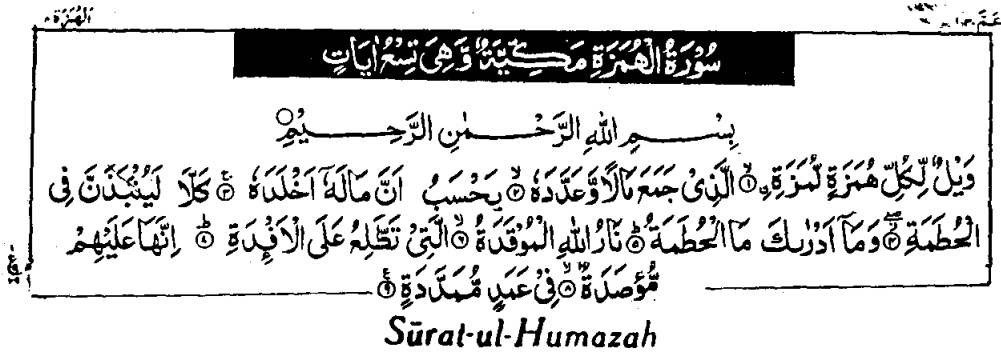 الهمزة ١٠٤
عمّ ٣٠
سُوْرَةُ الْهُمَزَةِ مَكِّيَّةٌ وَّهِيَ تِسْعُ اٰيَاتٍ
بِسْمِ اللهِ الرَّحْمٰنِ الرَّحِيْمِ ○
وَيْلٌ لِّكُلِّ هُمَزَةٍ لُّمَزَةِ ۙ﴿١﴾ الَّذِيْ جَمَعَ مَالًا وَّعَدَّدَهٗ ۙ﴿٢﴾ يَحْسَبُ اَنَّ مَالَهٗٓ اَخْلَدَهٗ ۚ﴿٣﴾ كَلَّا لَيُنْۢبَذَنَّ فِي
الْحُطَمَةِ ۖ﴿٤﴾ وَمَآ اَدْرٰىكَ مَا الْحُطَمَةُ ؕ﴿٥﴾ نَارُ اللهِ الْمُوْقَدَةُ ۙ﴿٦﴾ الَّتِيْ تَطَّلِعُ عَلَى الْاَفْـِٕدَةِ ؕ﴿٧﴾ اِنَّهَا عَلَيْهِمْ
مُّؤْصَدَةٌ ۙ﴿٨﴾ فِيْ عَمَدٍ مُّمَدَّدَةٍ ۠﴿٩﴾
Sūrat-ul-Humazah